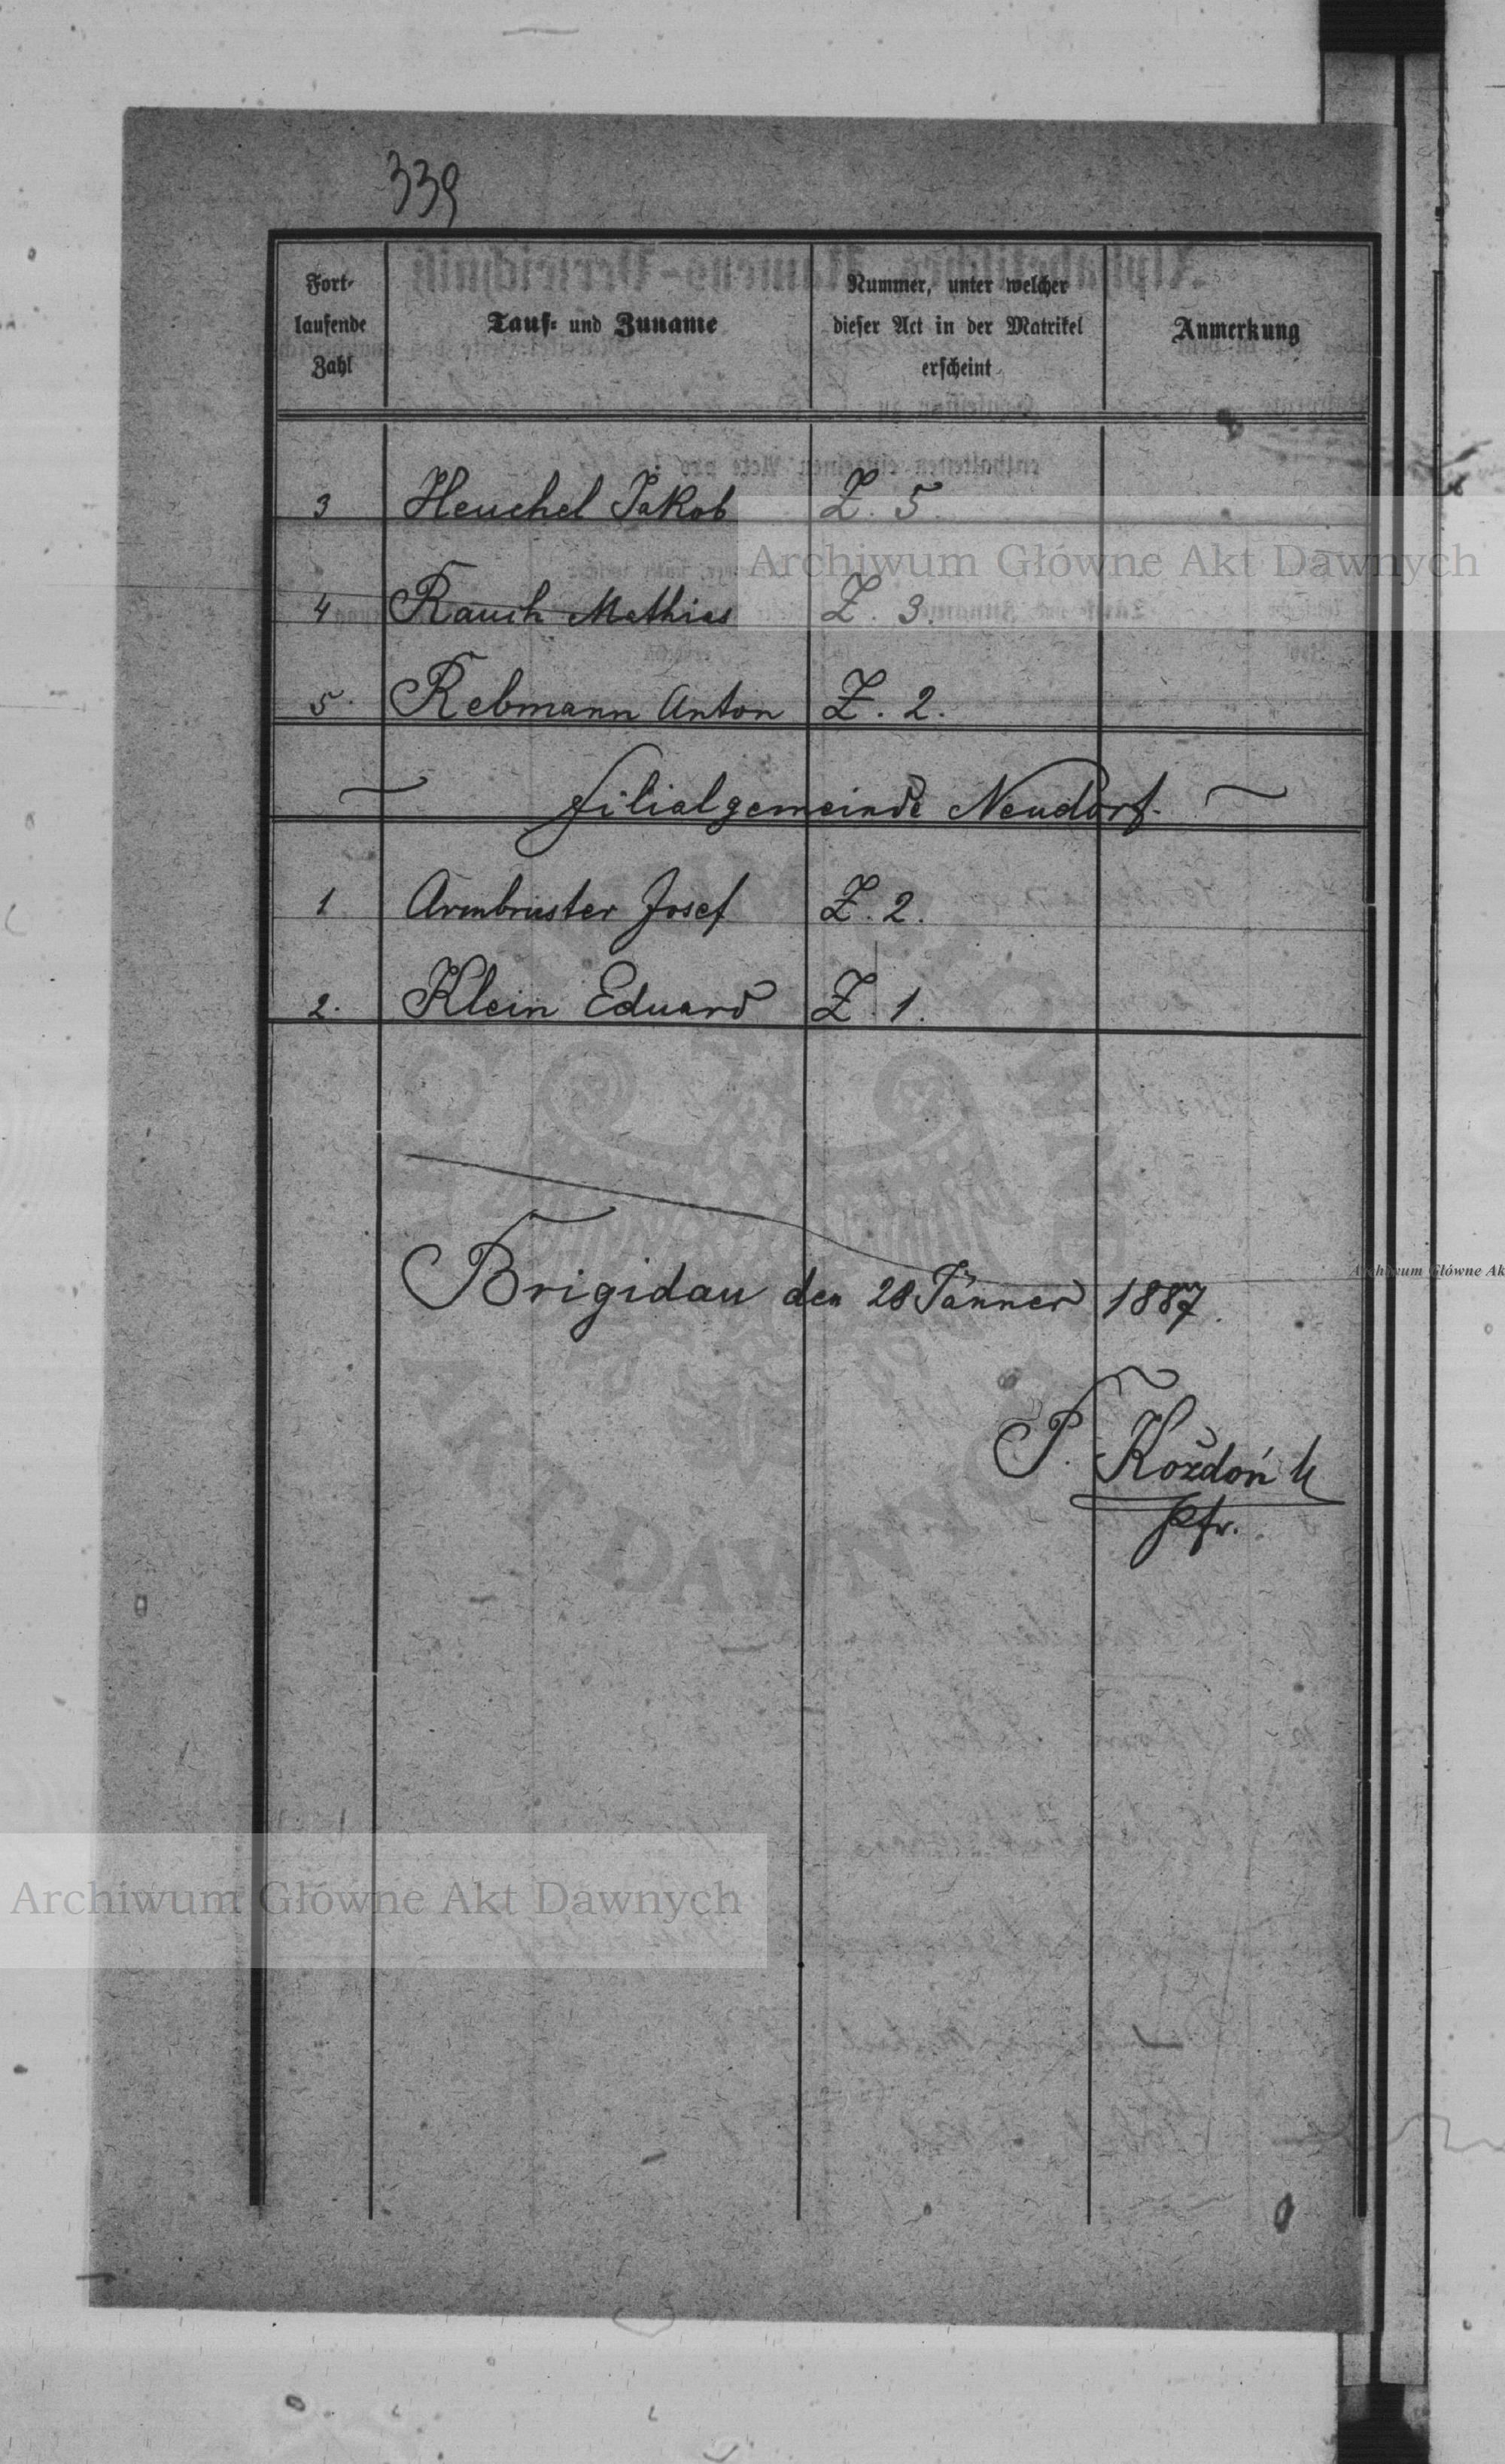 339
Fort-
laufende
Zahl
Tauf- und Zuname
Nummer, unter welcher
dieser Act in der Matrikel
erscheint
Anmerkung
3 Heuchel Jakob Z. 5.
4 Rauch Mathias Z. 3.
5. Rebmann Anton Z. 2.
Filialgemeinde Neudorf.
1 Armbruster Josef Z. 2.
2. Klein Eduard Z. 1.
Brigidau den 28 Jänner 1887.
P. Koždoń
Pfr.
Archiwum Główne Akt Dawnych
Archiwum Główne Akt Dawnych
Archiwum Główne Ak
ARCHIWUM GŁÓWNE
AKT DAWNYCH